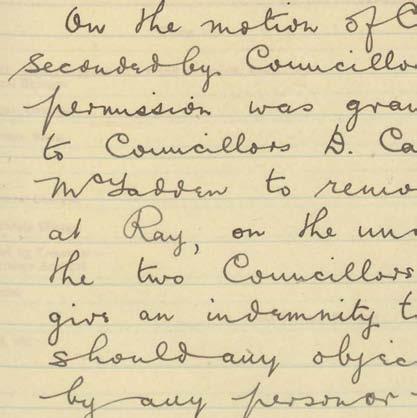 On the motion of C
seconded by Councillo
permission was gran
to Councillors D. Ca
McFadden to remo
at Ray, on the un
the two Councillors
give an indemnity t
should any objec
by any person or